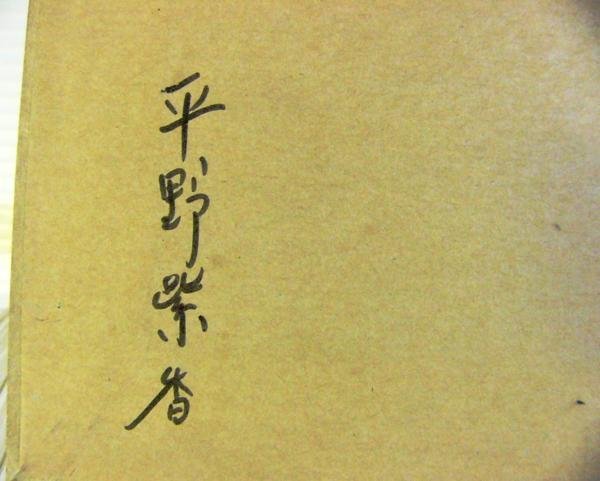 平野紫香